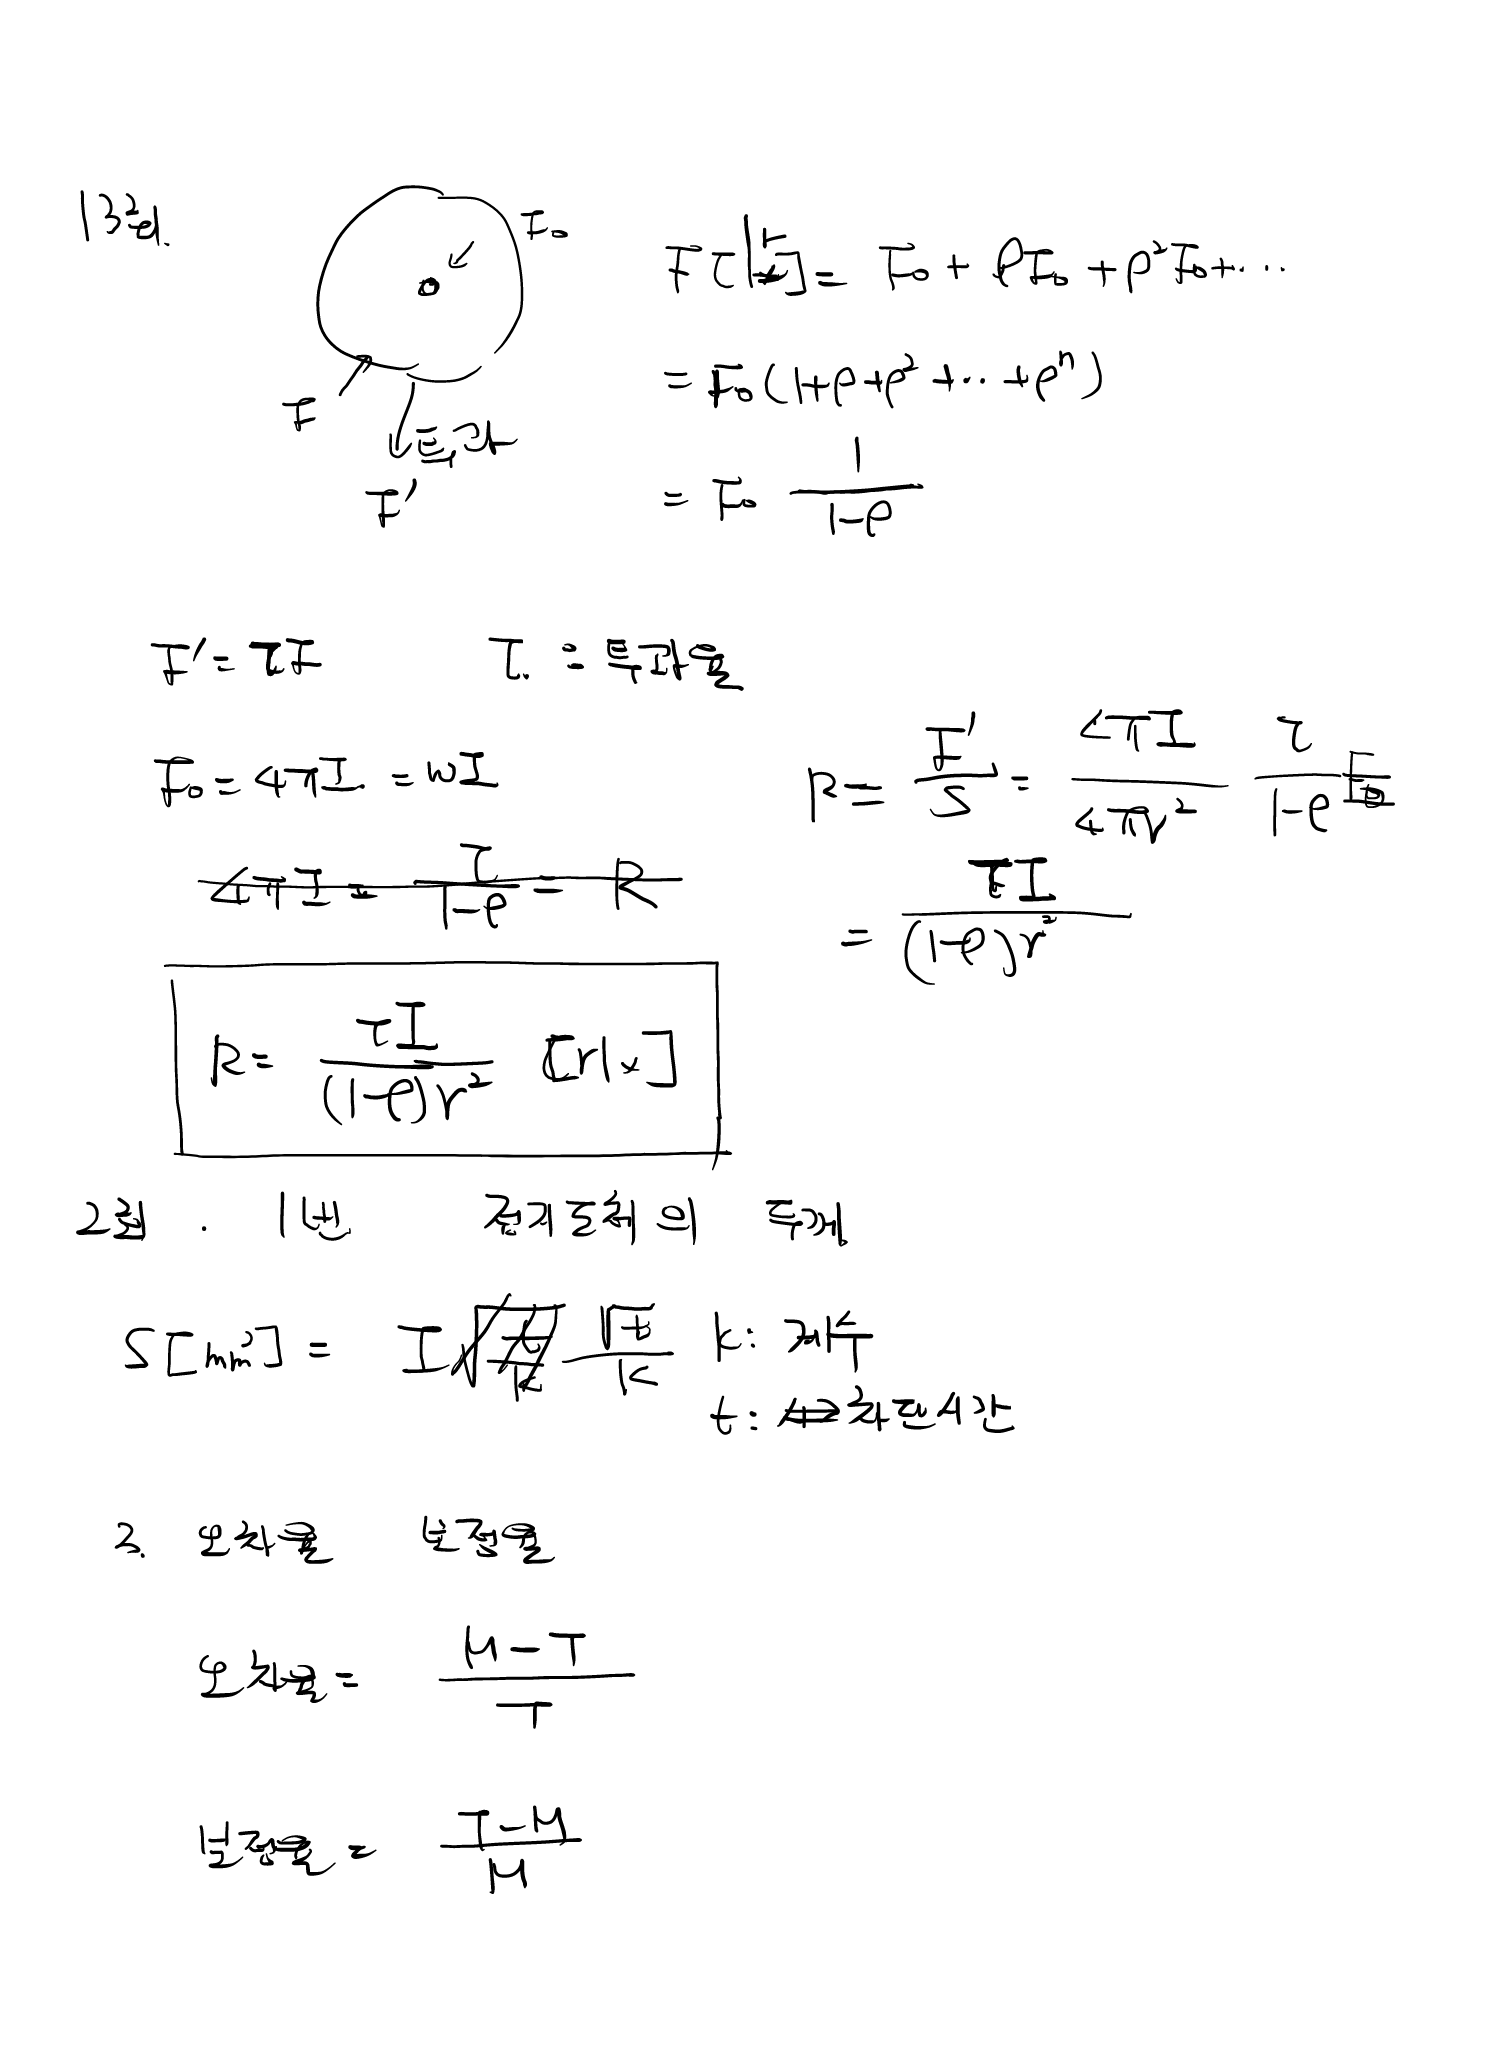 13회.
F₀
F
투과
F'
F[ ]= F₀ + ρF₀ + ρ²F₀+...
= F₀(1+ρ+ρ²+...+ρⁿ)
= F₀ 1/(1-ρ)
F' = τF τ. : 투과율
F₀ = 4πI. = wI
R = F'/S = 4πI/4πr² τ/(1-ρ)
= τI/(1-ρ)r²
4πI = τ/(1-ρ) = R
R = τI/(1-ρ)r² [rlx]
2회 . 1번 접지도체의 두께
S[mm²] = I √t/k k: 계수
t: 차단시간
3. 오차율 보정율
오차율 = (M-T)/T
보정율 = (T-M)/M